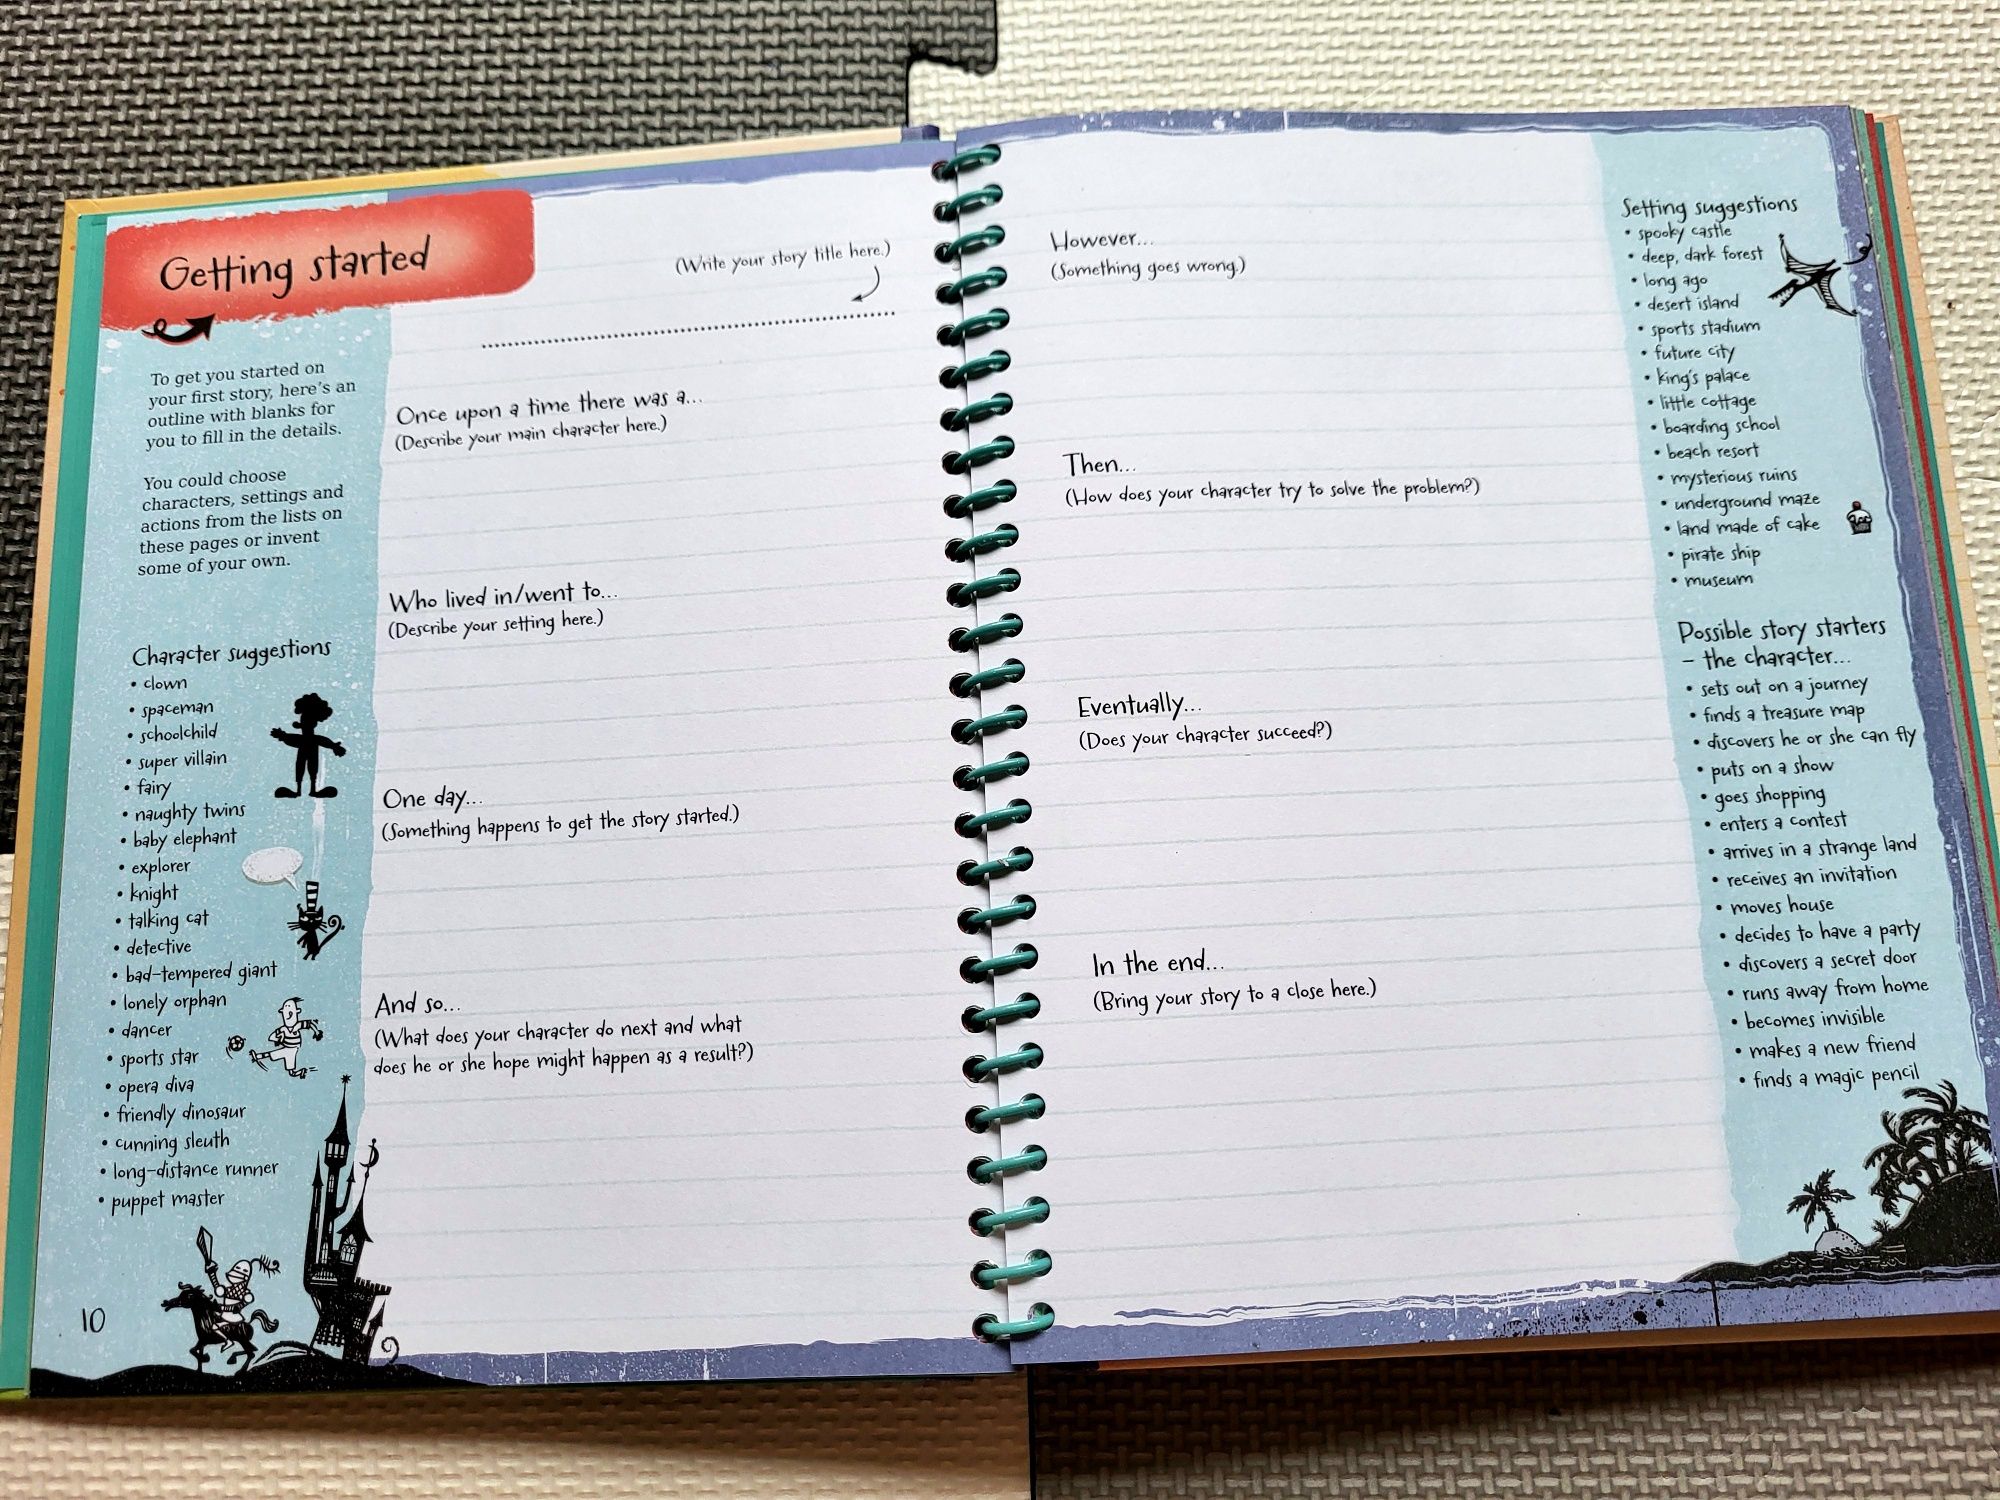 Getting started
(Write your story title here.)
To get you started on
your first story, here's an
outline with blanks for
you to fill in the details.
You could choose
characters, settings and
actions from the lists on
these pages or invent
some of your own.
Character suggestions
• clown
• spaceman
• schoolchild
• super villain
• fairy
• naughty twins
• baby elephant
• explorer
• knight
• talking cat
• detective
• bad-tempered giant
• lonely orphan
• dancer
• sports star
• opera diva
• friendly dinosaur
• cunning sleuth
• long-distance runner
• puppet master
10
Once upon a time there was a...
(Describe your main character here.)
Who lived in/went to...
(Describe your setting here.)
One day...
(Something happens to get the story started.)
And so...
(What does your character do next and what
does he or she hope might happen as a result?)
However...
(Something goes wrong.)
Then...
(How does your character try to solve the problem?)
Eventually...
(Does your character succeed?)
In the end...
(Bring your story to a close here.)
Setting suggestions
• spooky castle
• deep, dark forest
• long ago
• desert island
• sports stadium
• future city
• king's palace
• little cottage
• boarding school
• beach resort
• mysterious ruins
• underground maze
• land made of cake
• pirate ship
• museum
Possible story starters
– the character...
• sets out on a journey
• finds a treasure map
• discovers he or she can fly
• puts on a show
• goes shopping
• enters a contest
• arrives in a strange land
• receives an invitation
• moves house
• decides to have a party
• discovers a secret door
• runs away from home
• becomes invisible
• makes a new friend
• finds a magic pencil